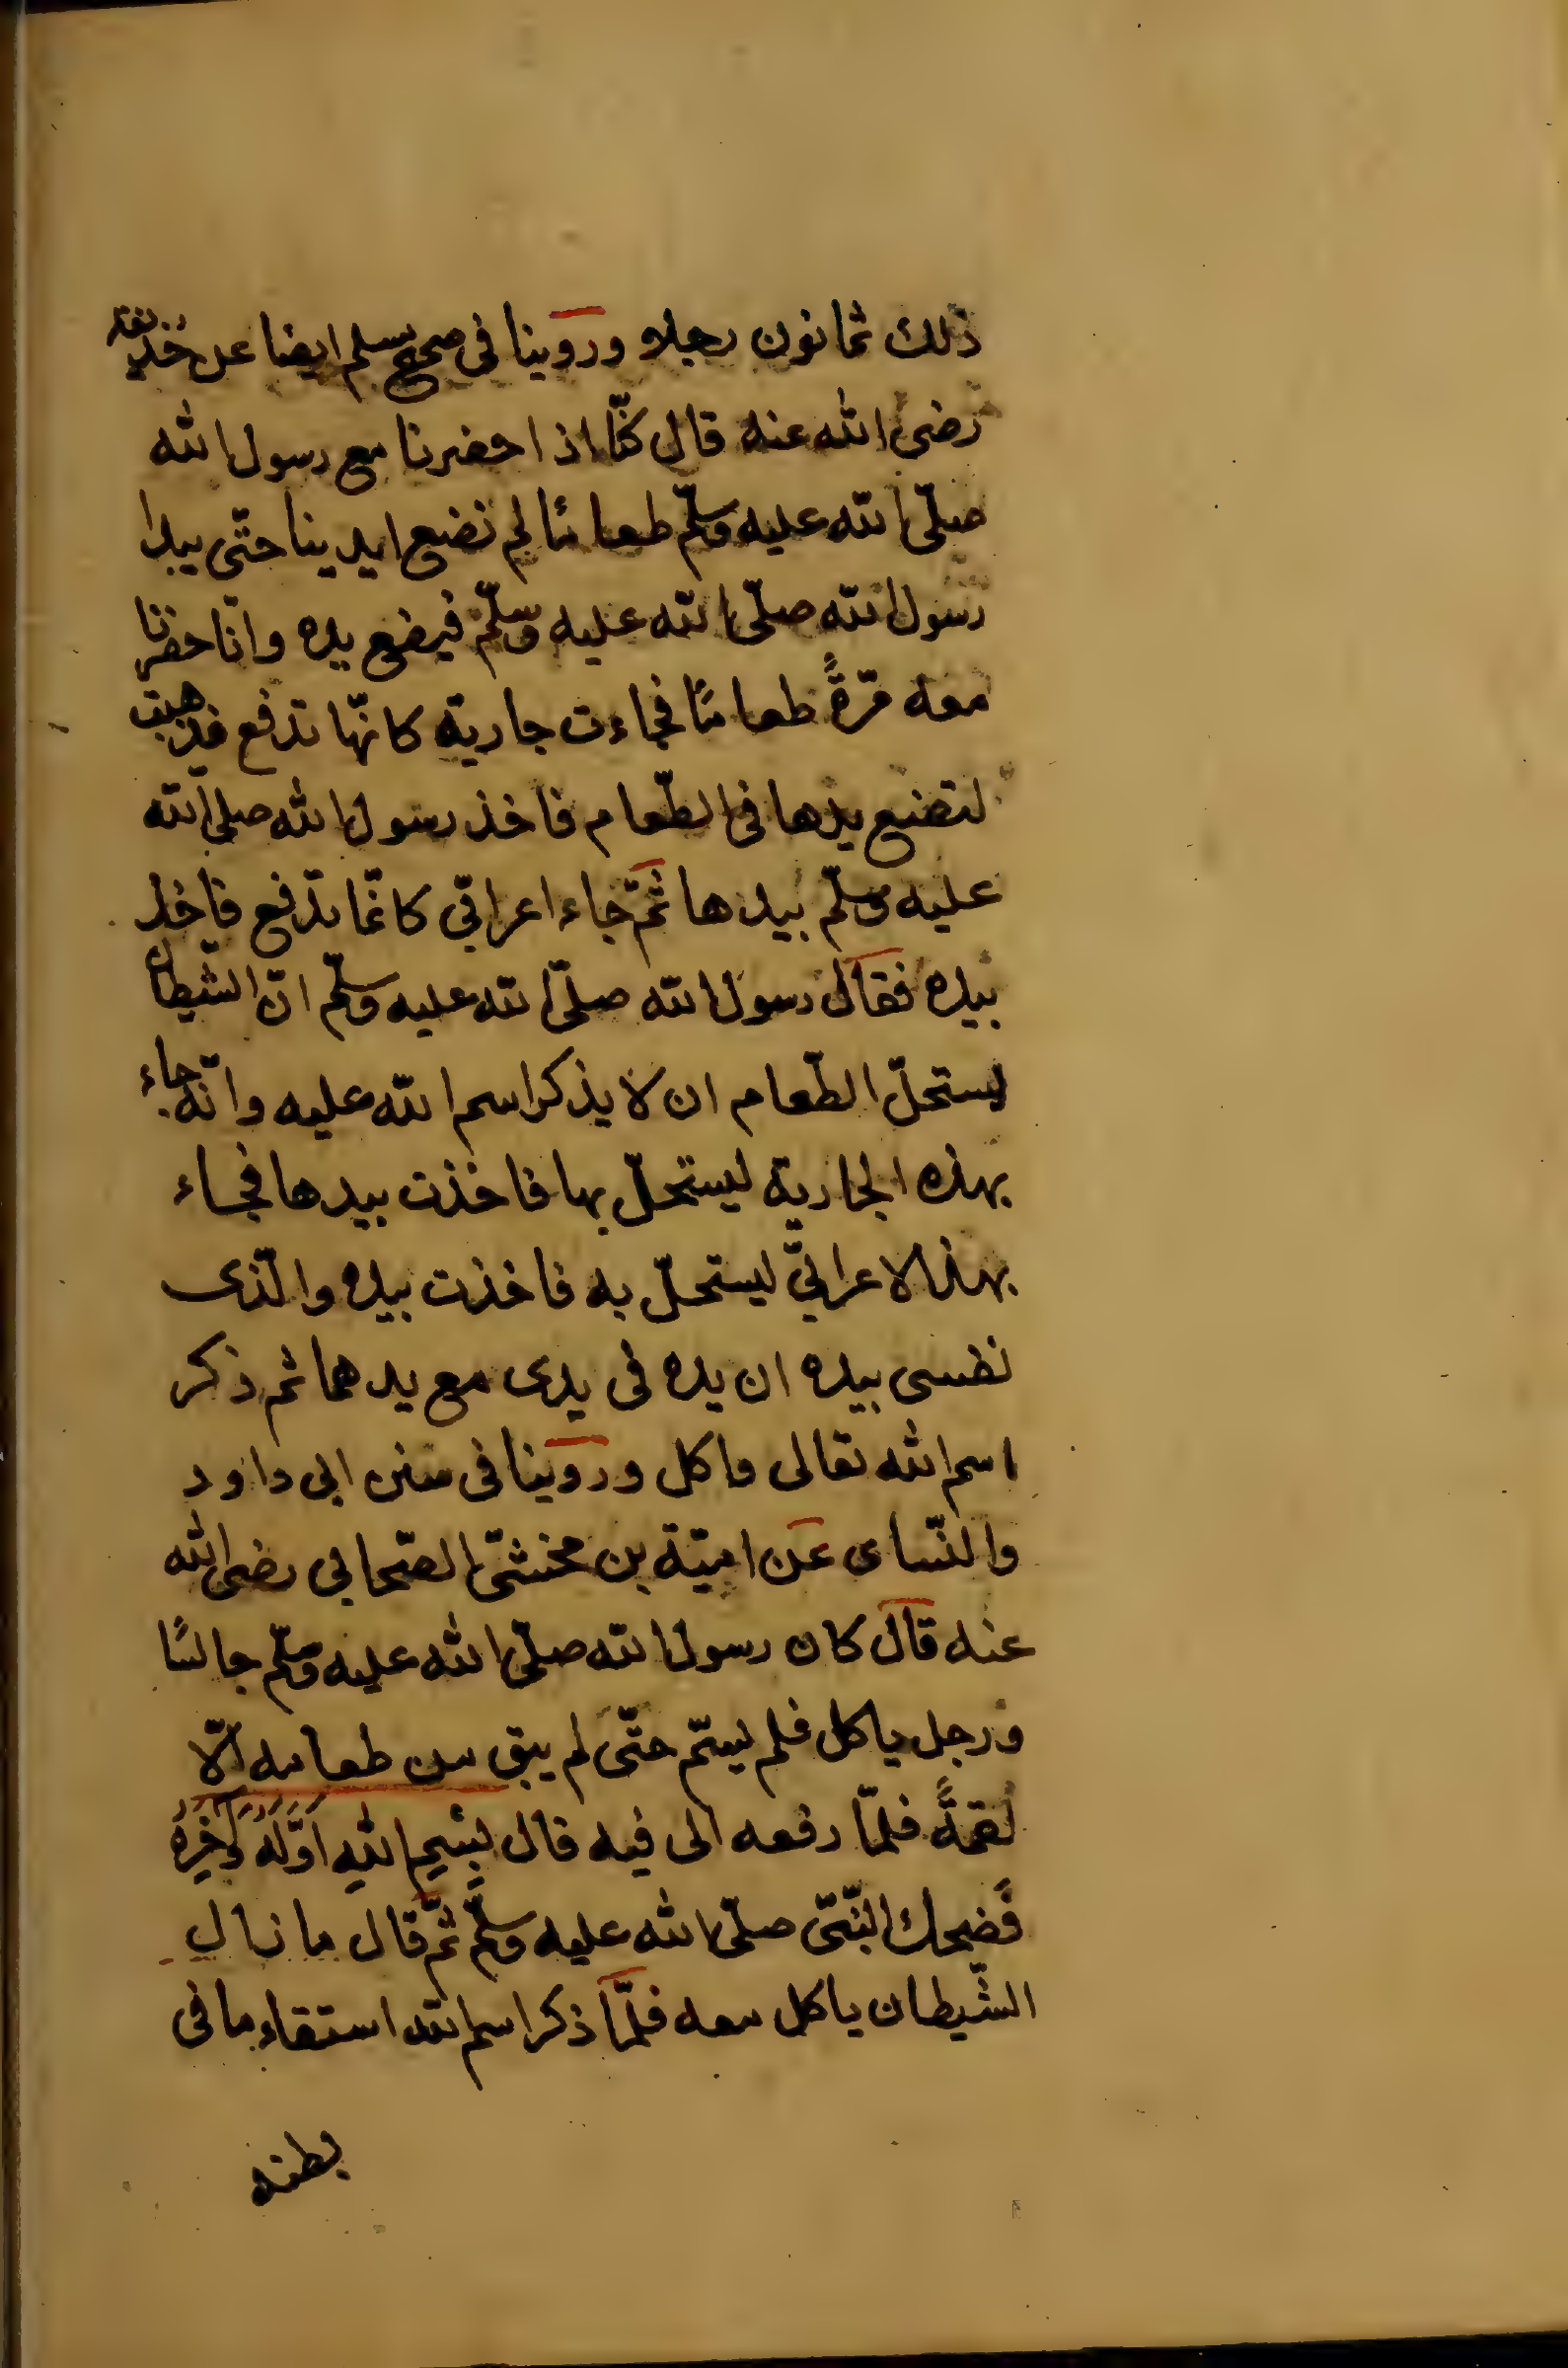 ذلك ثمانون رجلا وروينا فى صحيح مسلم ايضا عن حذيفة
رضى الله عنه قال كنّا اذا حضرنا مع رسول الله
صلّى الله عليه وسلّم طعامًا لم نضع ايدينا حتّى يبدا
رسول الله صلّى الله عليه وسلّم فيضع يده وانّا حضرنا
معه مرّةً طعامًا فجاءت جارية كانّها تدفع فذهبت
لتضع يدها فى الطّعام فاخذ رسول الله صلى الله
عليه وسلّم بيدها ثمّ جاء اعرابّي كانّما تدفع فاخذ
بيده فقال رسول الله صلّى الله عليه وسلّم انّ الشّيطان
يستحلّ الطّعام ان لا يذكر اسم الله عليه وانّه جاء
بهذه الجارية ليستحلّ بها فاخذت بيدها فجاء
بهذا الاعرابيّ ليستحلّ به فاخذت بيده والّذى
نفسى بيده ان يده فى يدى مع يدهما ثم ذكر
اسم الله تعالى واكل وروينا فى سنن ابى داود
والنّساى عن اميّة بن مخشىّ الصّحابى رضى الله
عنه قال كان رسول الله صلّى الله عليه وسلّم جالسًا
ورجل ياكل فلم يسمّ حتّى لم يبق من طعامه الّا
لقمةً فلمّا رفعه الى فيه قال بِسْمِ اللهِ اَوَّلَهُ وَآخِرَهُ
فضحك النّبىّ صلّى الله عليه وسلّم ثمّ قال ما زال
الشّيطان ياكل معه فلمّا ذكر اسم الله استقاء ما فى
بطنه